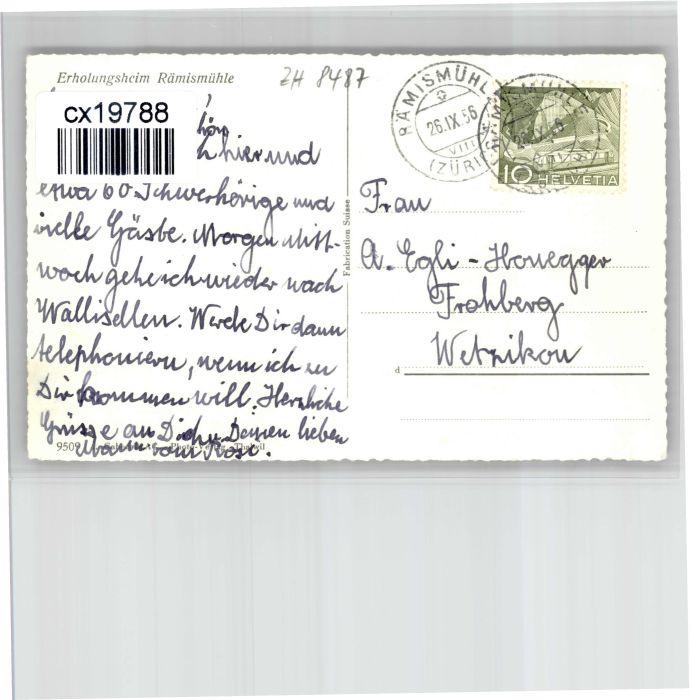 Erholungsheim Rämismühle
ZH 8487
cx19788
hier und
etwa 60 Schwerhörige und
vielle Gäste. Morgen Mitt-
woch gehe ich wieder nach
Wallisellen. Werde Dir dann
telephoniern, wenn ich zu
Dir kommen will. Herzliche
Grüsse an Dich u. Deinen lieben
Mann vom Rösi.
9509
Fabrication Suisse
RÄMISMÜHLE
26.IX.56
VIII
(ZÜRICH)
10 HELVETIA
Frau
A. Egli-Honegger
Frohberg
Wetzikon